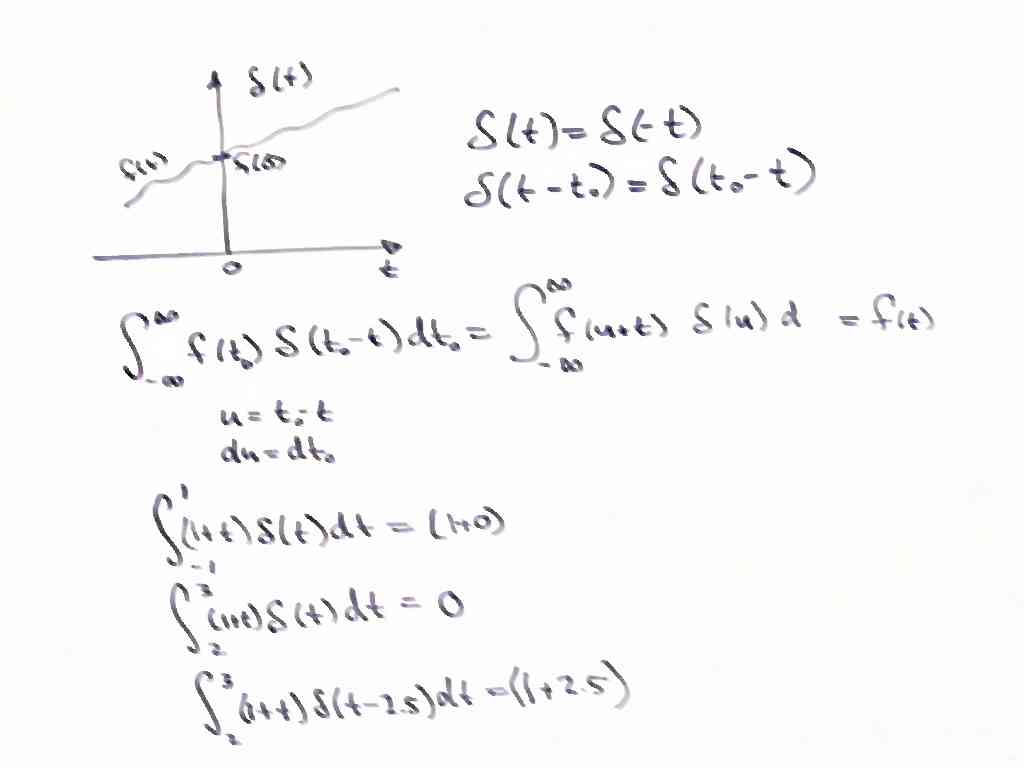 δ(t)
f(t) f(0)
0
t
δ(t) = δ(-t)
δ(t - t₀) = δ(t₀ - t)
∫_{-∞}^{∞} f(t₀) δ(t₀ - t) dt₀ = ∫_{-∞}^{∞} f(u+t) δ(u) d = f(t)
u = t₀ - t
du = dt₀
∫_{-1}^{1} (1+t) δ(t) dt = (1+0)
∫_{2}^{3} (1+t) δ(t) dt = 0
∫_{2}^{3} (1+t) δ(t-2.5) dt = (1+2.5)